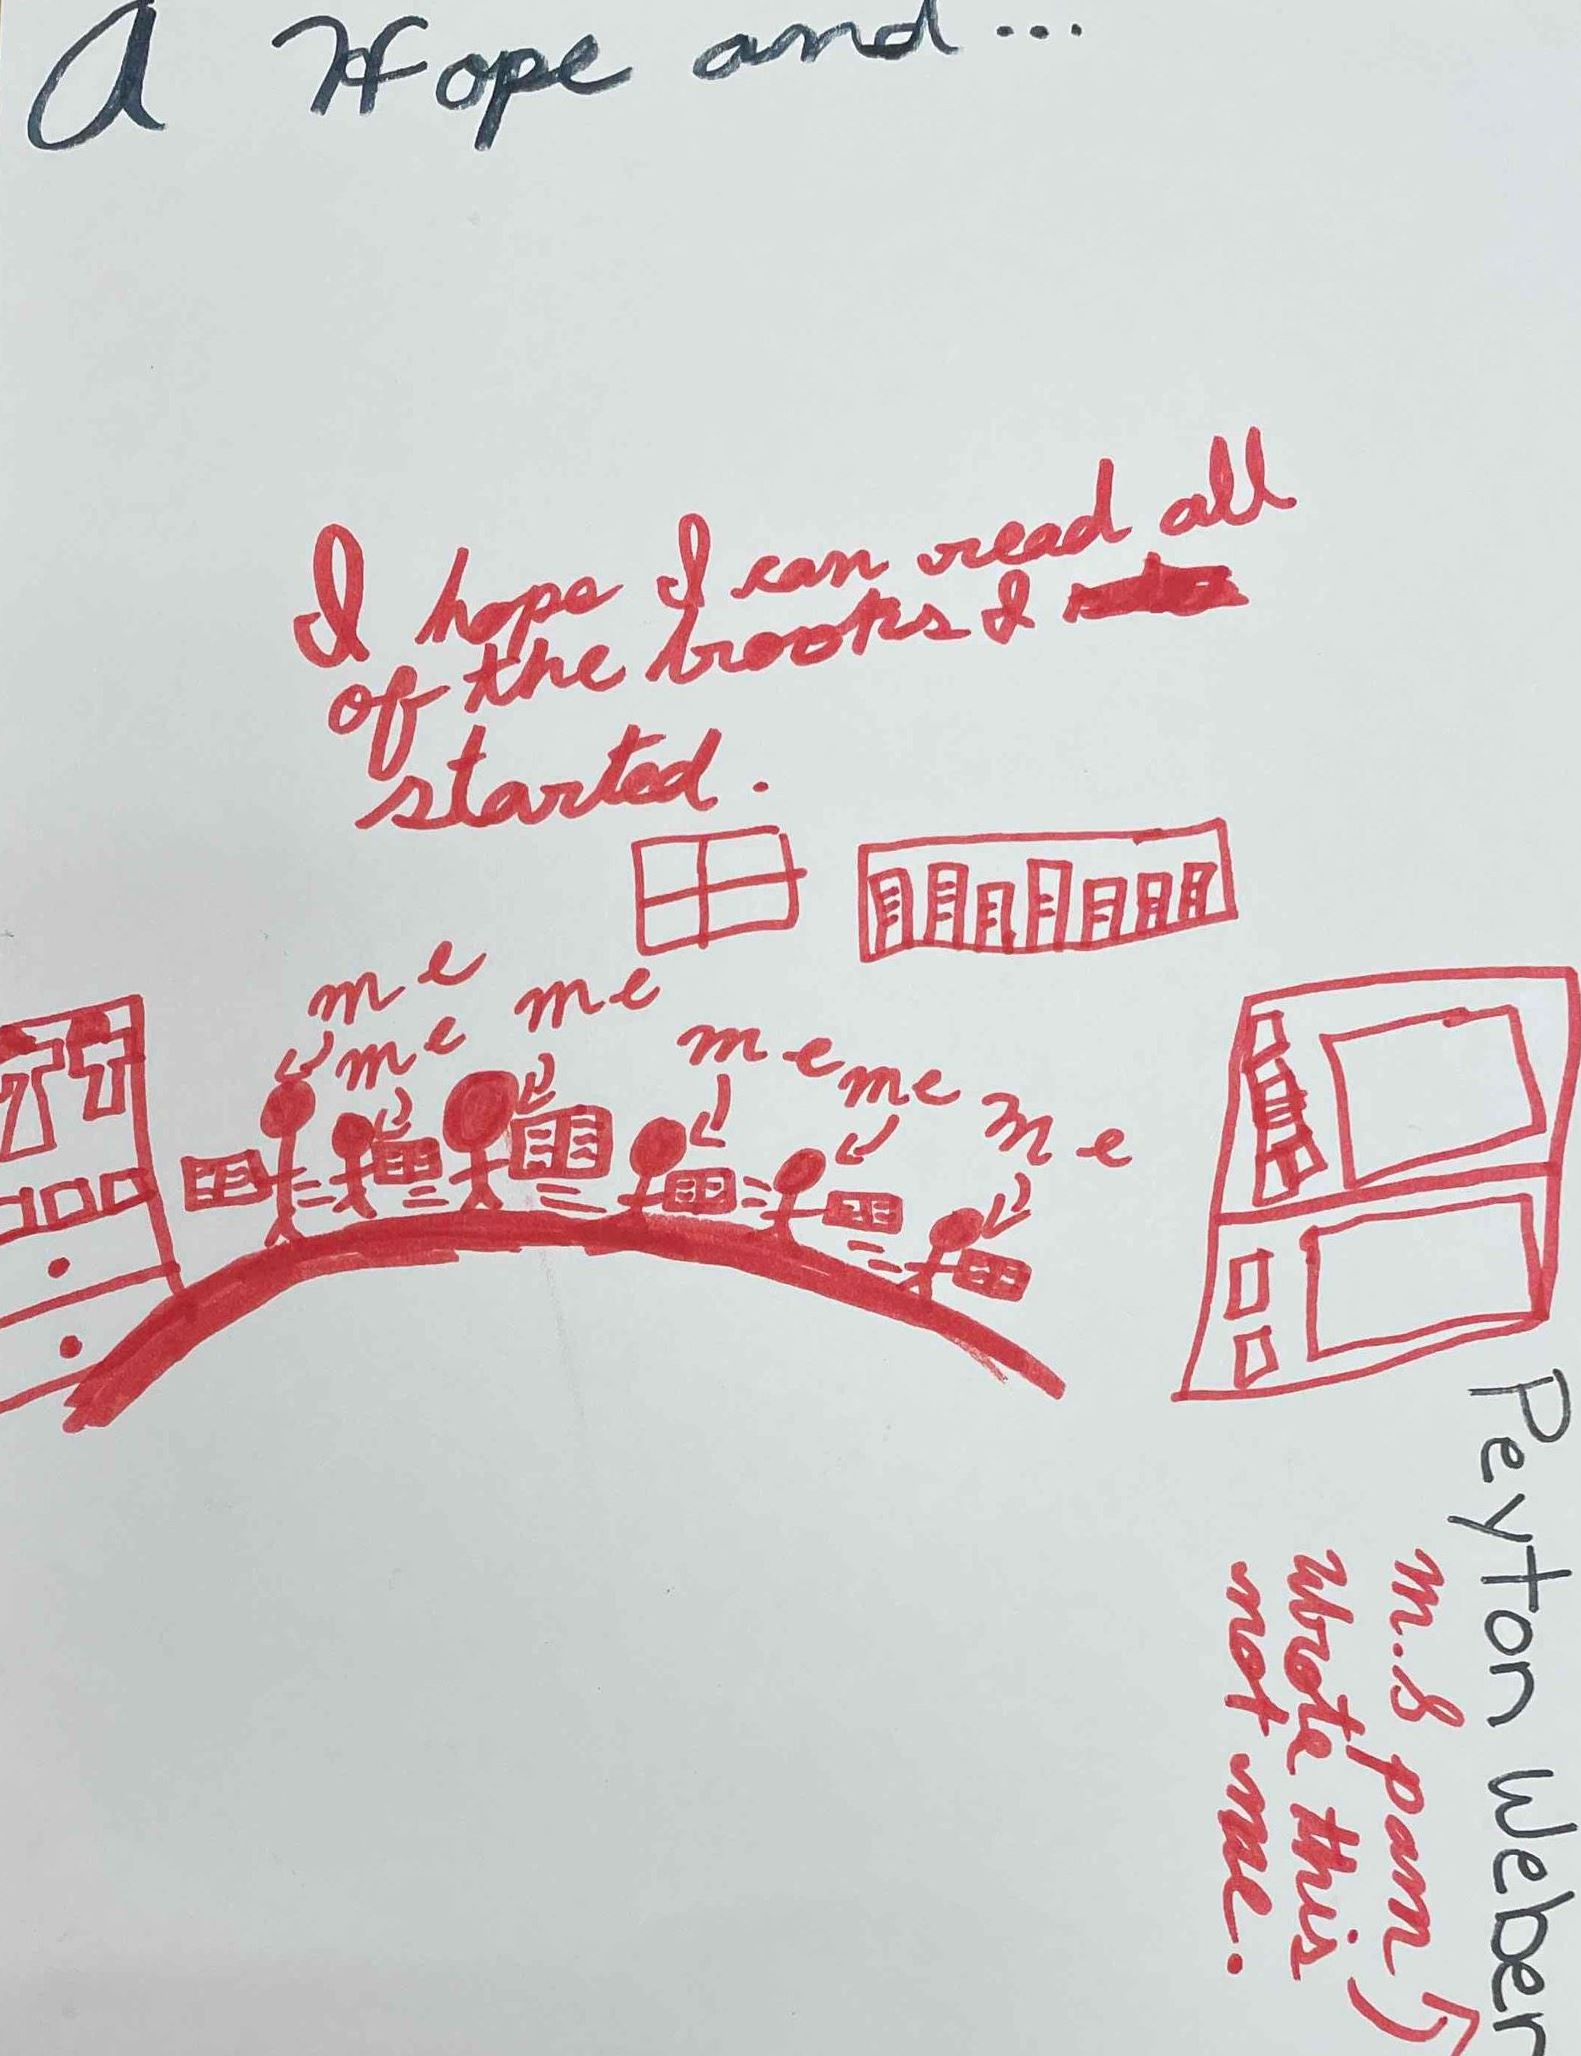 A Hope and...
I hope I can read all
of the books I
started.
me
me
me
me
me
me
Peyton Weber
M.S pam
wrote this
not me.